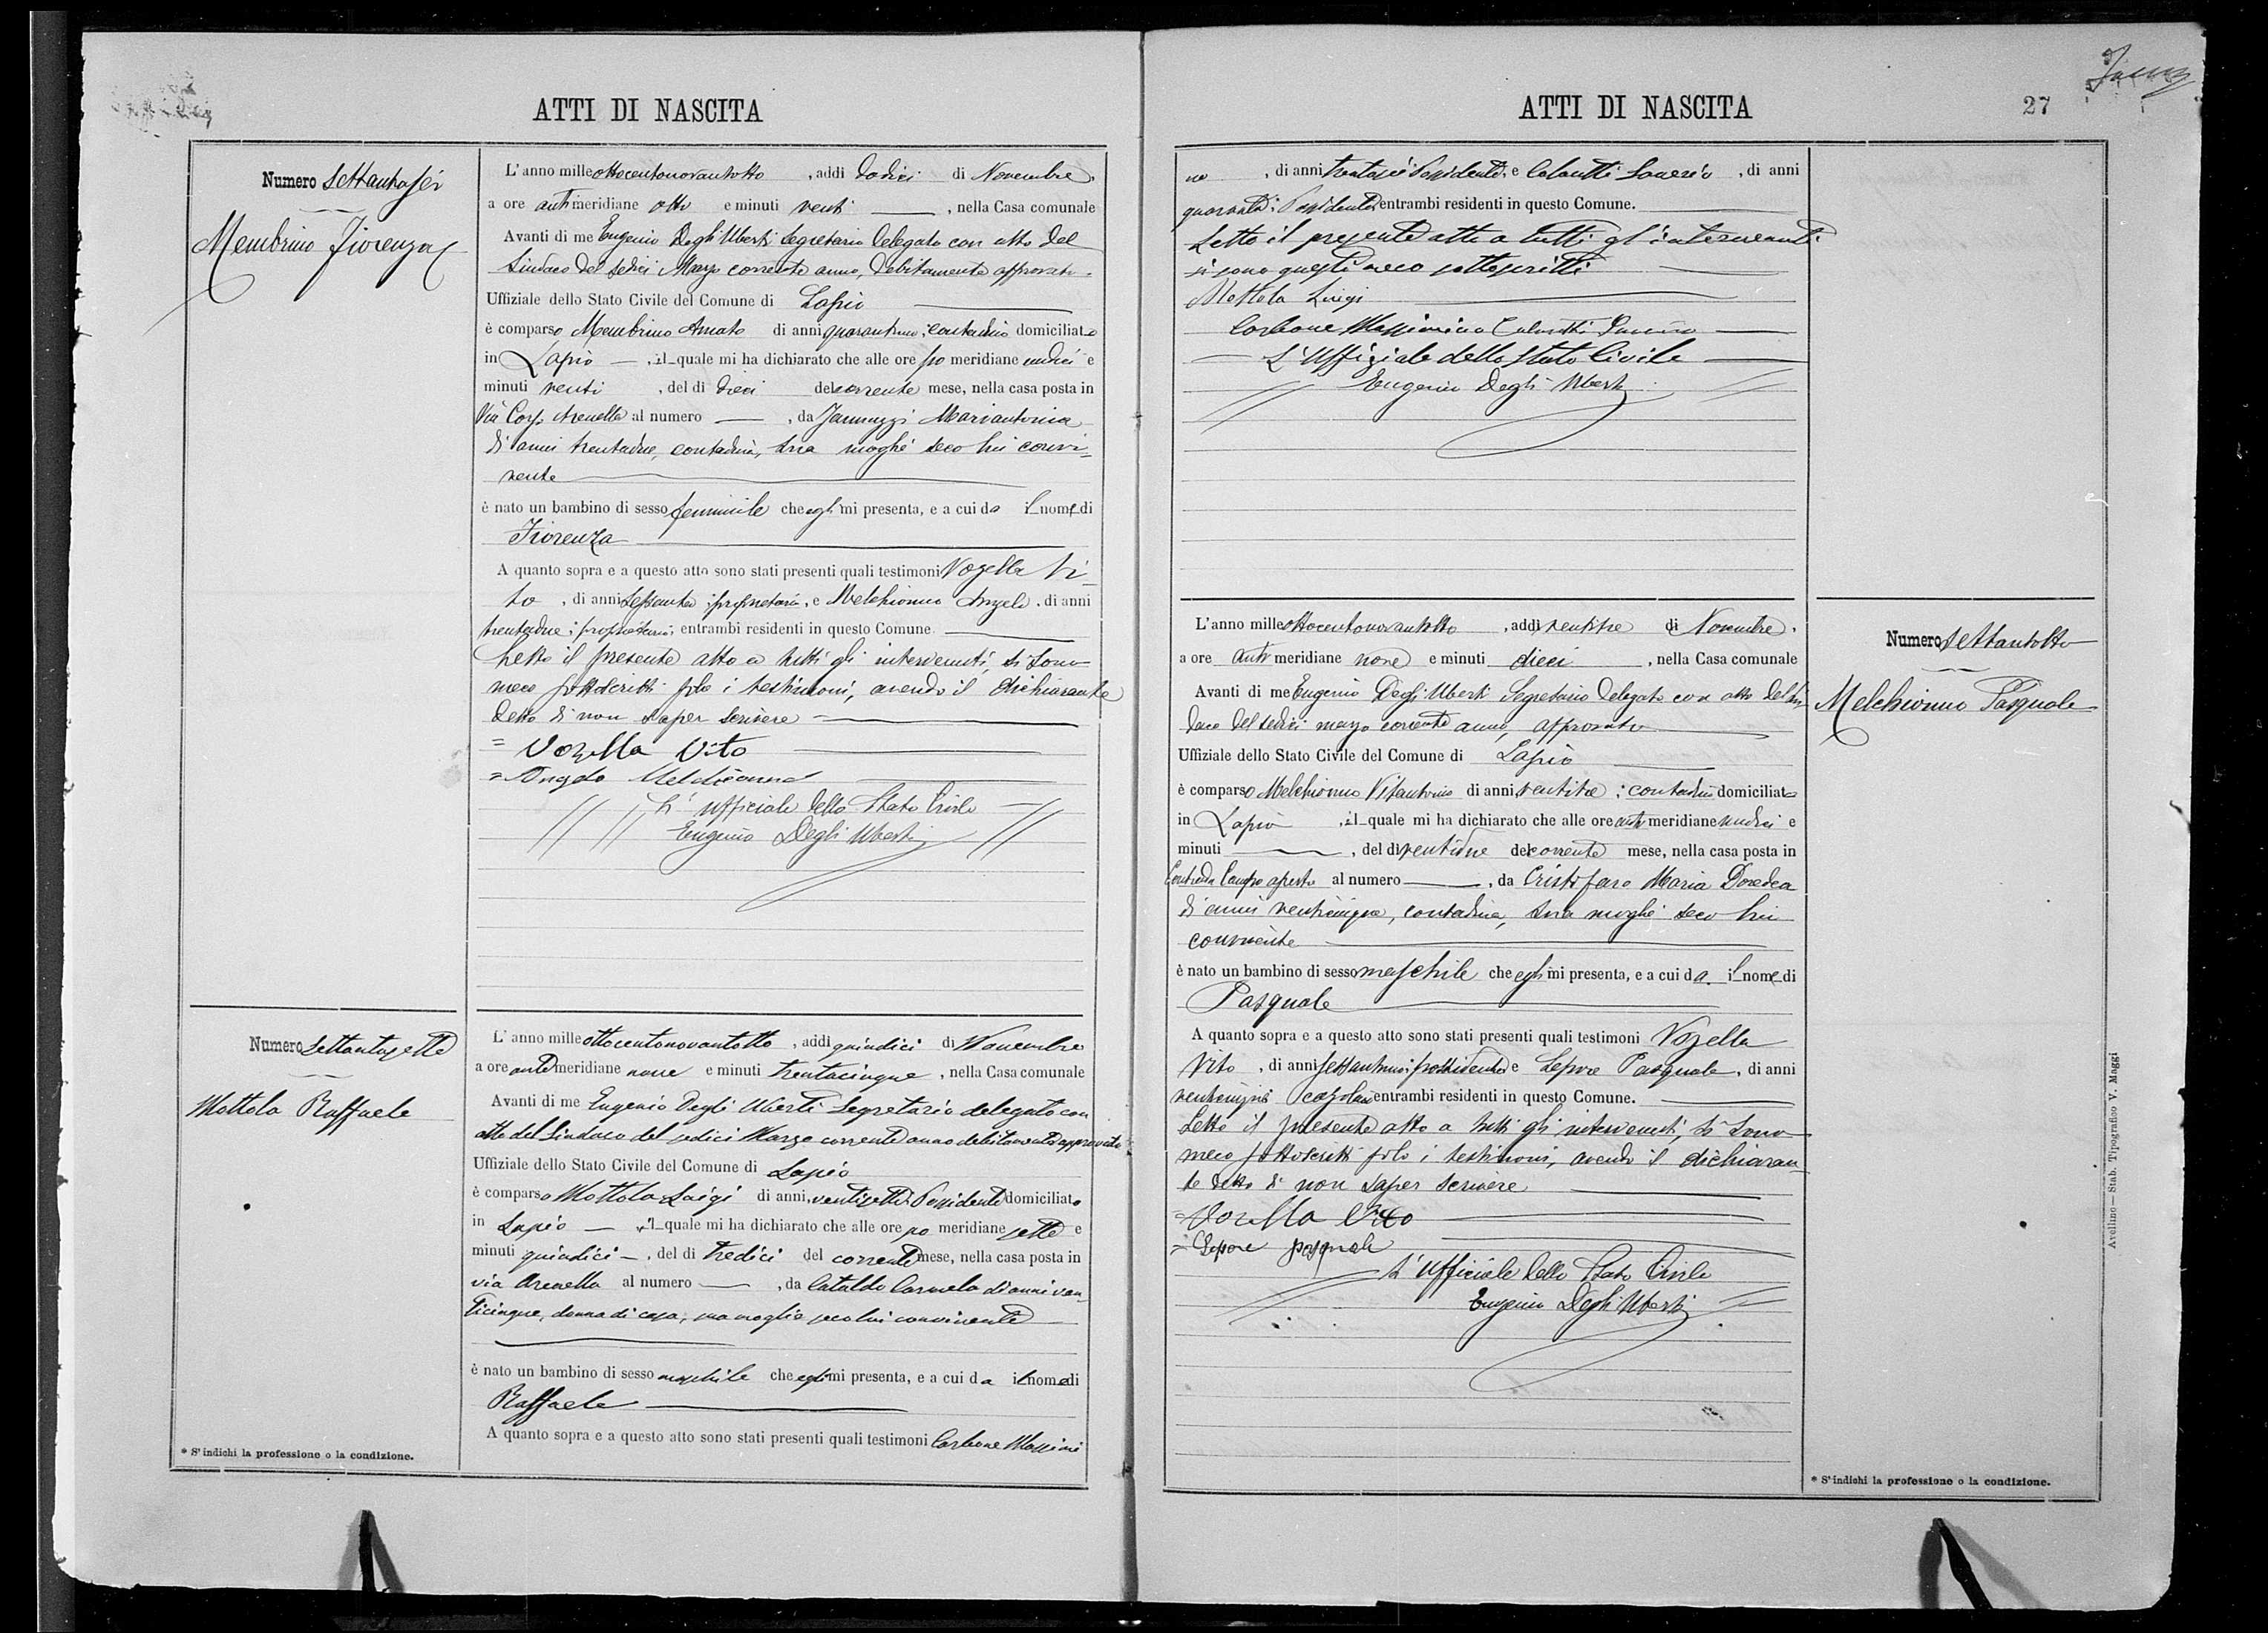 ATTI DI NASCITA
Numero Settantasei
Membrino Fiorenza
L'anno mille ottocentonovantotto, addi dodici di Novembre,
a ore antimeridiane otto e minuti venti, nella Casa comunale
Avanti di me Eugenio Degli Uberti Segretario Delegato con atto del
Sindaco del sedici Marzo corrente anno, debitamente approvato.
Uffiziale dello Stato Civile del Comune di Lapio
è comparso Membrino Amato di anni quarantuno; contadino domiciliato
in Lapio, il quale mi ha dichiarato che alle ore po meridiane undici e
minuti venti, del dì dieci del corrente mese, nella casa posta in
Via Corpo Arenella al numero —, da Jannuzzi Mariantonia
di anni trentadue, contadina, sua moglie seco lui convi-
vente
è nato un bambino di sesso femminile che egli mi presenta, e a cui da il nome di
Fiorenza
A quanto sopra e a questo atto sono stati presenti quali testimoni Vozella Vi-
to, di anni sessanta; proprietario, e Melchionno Angelo, di anni
trentadue; proprietario; entrambi residenti in questo Comune.
Letto il presente atto a tutti gli intervenuti, si sono
meco sottoscritti solo i testimoni, avendo il dichiarante
detto di non saper scrivere
= Vozella Vito
= Angelo Melchionno
L'ufficiale dello Stato Civile
Eugenio Degli Uberti
Numero Settantasette
Mottola Raffaele
L'anno mille ottocentonovantotto, addi quindici di Novembre
a ore antemeridiane nove e minuti trentacinque, nella Casa comunale
Avanti di me Eugenio Degli Uberti Segretario delegato con
atto del Sindaco del sedici Marzo corrente anno debitamente approvato
Uffiziale dello Stato Civile del Comune di Lapio
è comparso Mottola Luigi di anni ventisette Possidente domiciliato
in Lapio — il quale mi ha dichiarato che alle ore po meridiane sette e
minuti quindici —, del dì tredici del corrente mese, nella casa posta in
via Arenella al numero —, da Cataldo Carmela di anni ven-
ticinque, donna di casa, sua moglie seco lui convivente
è nato un bambino di sesso maschile che egli mi presenta, e a cui da il nome di
Raffaele
A quanto sopra e a questo atto sono stati presenti quali testimoni Carbone Massimi
* S'indichi la professione o la condizione.
ATTI DI NASCITA
27
no, di anni trentasei Possidente, e Calautti Saverio, di anni
quaranta; Possidente entrambi residenti in questo Comune.
Letto il presente atto a tutti gl'intervenuti
si sono questi meco sottoscritti
Mottola Luigi
Carbone Massimino Calautti Saverio
L'Uffiziale dello Stato Civile
Eugenio Degli Uberti
Numero Settantotto
Melchionno Pasquale
L'anno mille ottocentonovantotto, addi ventitre di Novembre,
a ore antimeridiane nove e minuti dieci, nella Casa comunale
Avanti di me Eugenio Degli Uberti Segretario Delegato con atto del Sin-
daco del sedici marzo corrente anno, approvato
Uffiziale dello Stato Civile del Comune di Lapio
è comparso Melchionno Vitantonio di anni ventitre; contadino domiciliato
in Lapio, il quale mi ha dichiarato che alle ore anti meridiane undici e
minuti —, del dì ventidue del corrente mese, nella casa posta in
Contrada Campo aperto al numero —, da Cristofaro Maria Dorodea
di anni venticinque, contadina, sua moglie seco lui
convivente
è nato un bambino di sesso maschile che egli mi presenta, e a cui da il nome di
Pasquale
A quanto sopra e a questo atto sono stati presenti quali testimoni Vozella
Vito, di anni settantuno; possidente e Lepore Pasquale, di anni
entrambi residenti in questo Comune.
Letto il presente atto a tutti gli intervenuti, si sono
meco sottoscritti solo i testimoni, avendo il dichiaran-
te detto di non saper scrivere
= Vozella Vito
= Lepore pasquale
L'Ufficiale dello Stato Civile
Eugenio Degli Uberti
* S'indichi la professione o la condizione.
Avellino — Stab. Tipografico V. Maggi